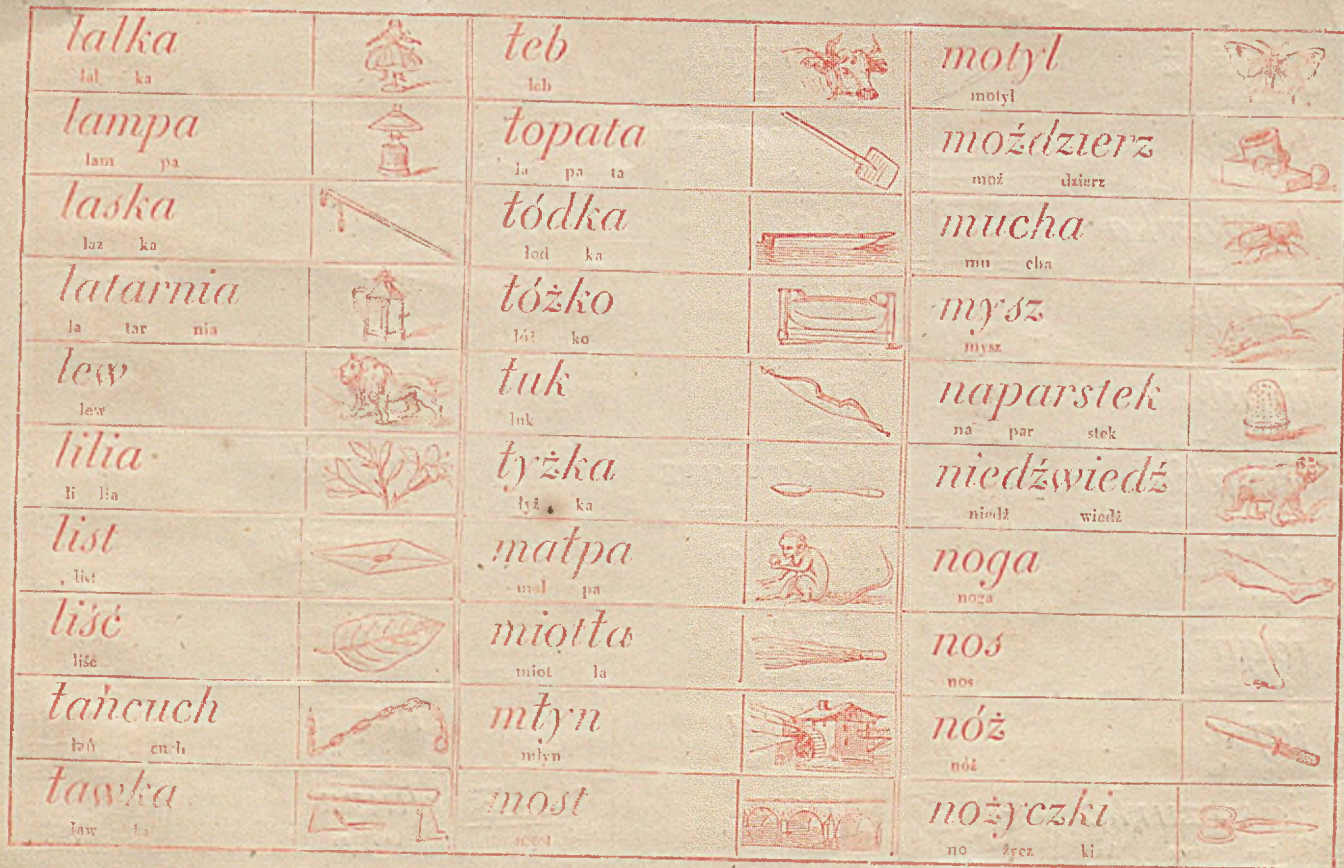 lalka
lal ka
lampa
lam pa
laska
laz ka
latarnia
la tar nia
lew
lew
lilia
li lia
list
list
liść
liść
łańcuch
łań cuch
ławka
ław ka
łeb
łeb
łopata
ło pa ta
łódka
łód ka
łóżko
łóż ko
łuk
łuk
łyżka
łyż ka
małpa
mał pa
miotła
miot ła
młyn
młyn
most
most
motyl
motyl
moździerz
moź dzierz
mucha
mu cha
mysz
mysz
naparstek
na par stek
niedźwiedź
niedź wiedź
noga
noga
nos
nos
nóż
nóż
nożyczki
no życz ki